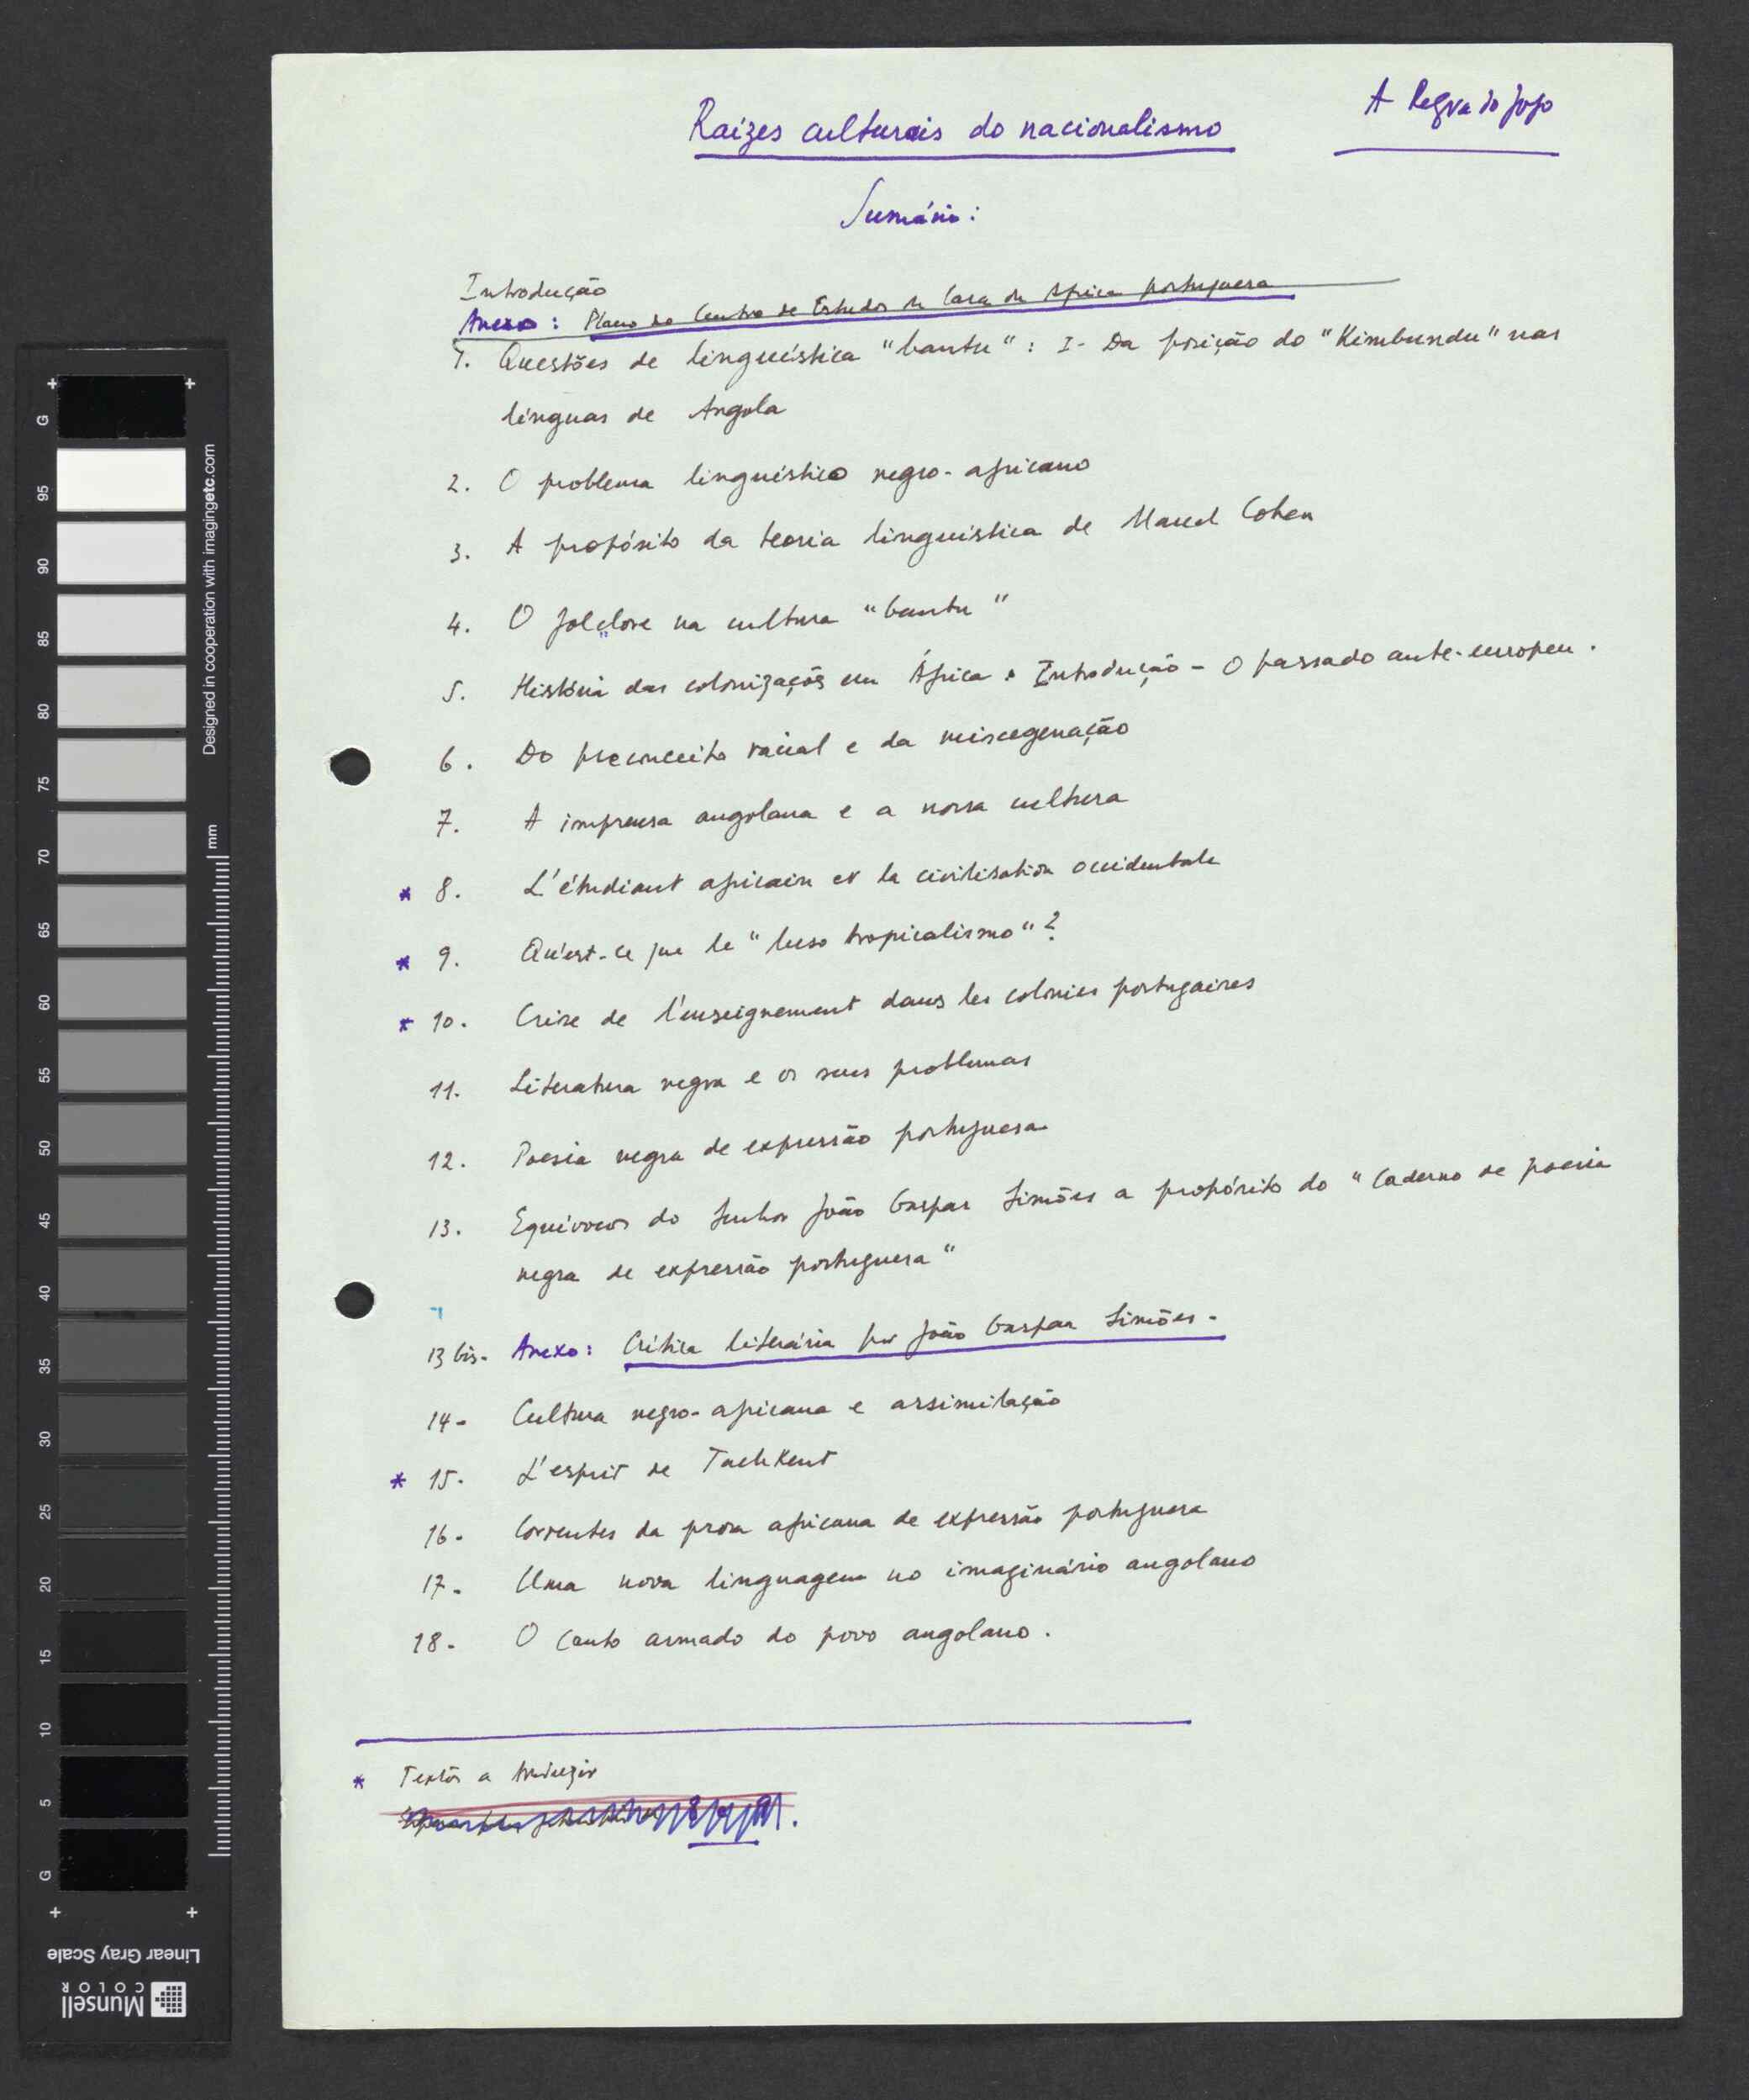 Raízes culturais do nacionalismo
A Regra do Jogo
Sumário:
Introdução
Anexo: Plano do Centro de Estudos da Casa da África portuguesa
1. Questões de linguística "bantu" : I - Da posição do "Kimbundu" nas
línguas de Angola
2. O problema linguístico negro-africano
3. A propósito da teoria linguística de Marcel Cohen
4. O folclore na cultura "bantu"
5. História das colonizações em África. Introdução - O passado ante-europeu.
6. Do preconceito racial e da miscegenação
7. A imprensa angolana e a nossa cultura
* 8. L'étudiant africain et la civilisation occidentale
* 9. Qu'est-ce que le "luso tropicalismo"?
* 10. Crise de l'enseignement dans les colonies portugaises
11. Literatura negra e os seus problemas
12. Poesia negra de expressão portuguesa
13. Equívocos do Senhor João Gaspar Simões a propósito do "Caderno de poesia
negra de expressão portuguesa"
13 bis. Anexo: Crítica literária por João Gaspar Simões.
14- Cultura negro-africana e assimilação
* 15. L'esprit de Tachkent
16- Correntes da prosa africana de expressão portuguesa
17. Uma nova linguagem no imaginário angolano
18- O canto armado do povo angolano.
* Textos a traduzir
G 95 90 85 80 75 70 65 60 55 50 45 40 35 30 25 20 15 10 5 G
Designed in cooperation with imagingetc.com
mm
Linear Gray Scale
Munsell
COLOR